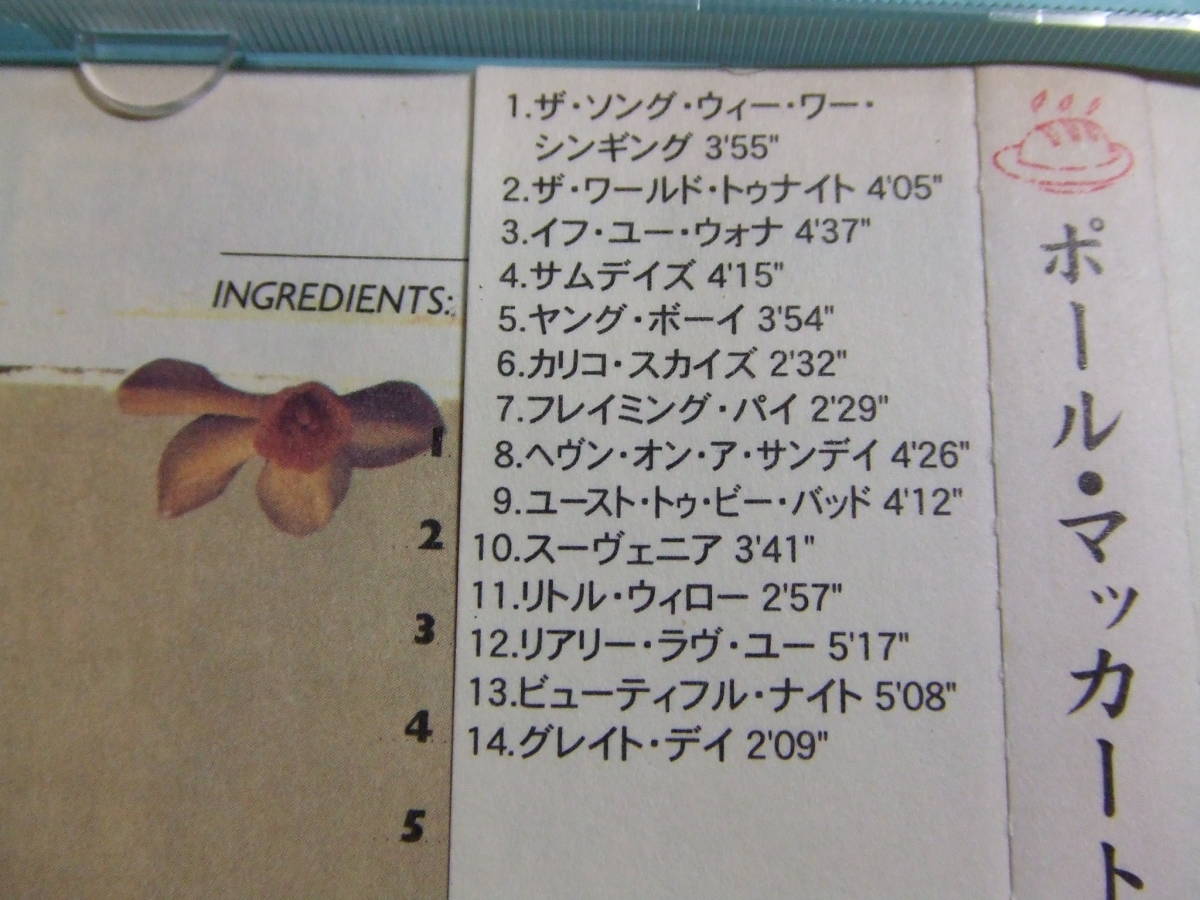 INGREDIENTS:
1
2
3
4
5
1.ザ・ソング・ウィー・ワー・
シンギング 3'55"
2.ザ・ワールド・トゥナイト 4'05"
3.イフ・ユー・ウォナ 4'37"
4.サムデイズ 4'15"
5.ヤング・ボーイ 3'54"
6.カリコ・スカイズ 2'32"
7.フレイミング・パイ 2'29"
8.ヘヴン・オン・ア・サンデイ 4'26"
9.ユースト・トゥ・ビー・バッド 4'12"
10.スーヴェニア 3'41"
11.リトル・ウィロー 2'57"
12.リアリー・ラヴ・ユー 5'17"
13.ビューティフル・ナイト 5'08"
14.グレイト・デイ 2'09"
ポール・マッカート